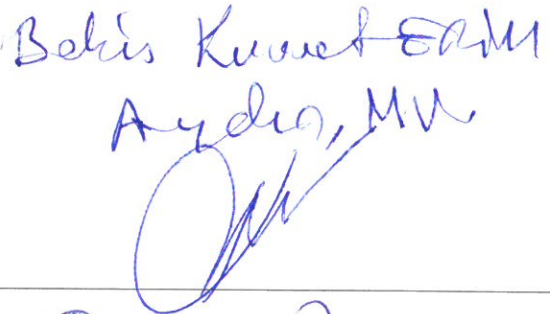 Bekir Kuvvet ERİM
Aydın, MV.